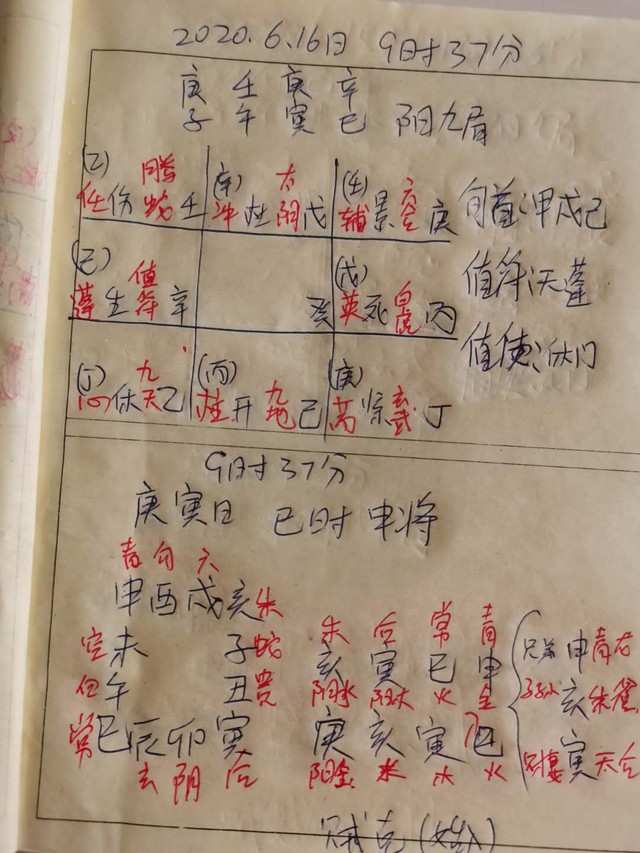 2020.6.16日 9日寸37分
庚 壬 庚 辛
子 午 寅 巳 阳九局
(乙) 腾 (辛) 太 (壬) 六
任伤蛇壬 冲杜阴戊 辅景合庚 旬首:甲戌己
(己) 值 (戊) 白 值符:天蓬
蓬生符辛 癸 英死虎丙 值使:休门
(丁) 九 (丙) (庚) 玄
心休天乙 柱开九地己 芮惊武丁
9日寸37分
庚寅日 巳时 申将
青 勾 六
申酉戌亥朱
空未 子蛇 朱 后 常 青
白午 丑贵 亥 寅 巳 申 兄弟申青龙
阳水 阳木 火 金 子孙亥朱雀
常巳辰卯寅 庚 亥 寅 巳 妻寅天后
玄 阴 后 阳金 水 木 火
贼克(始入)